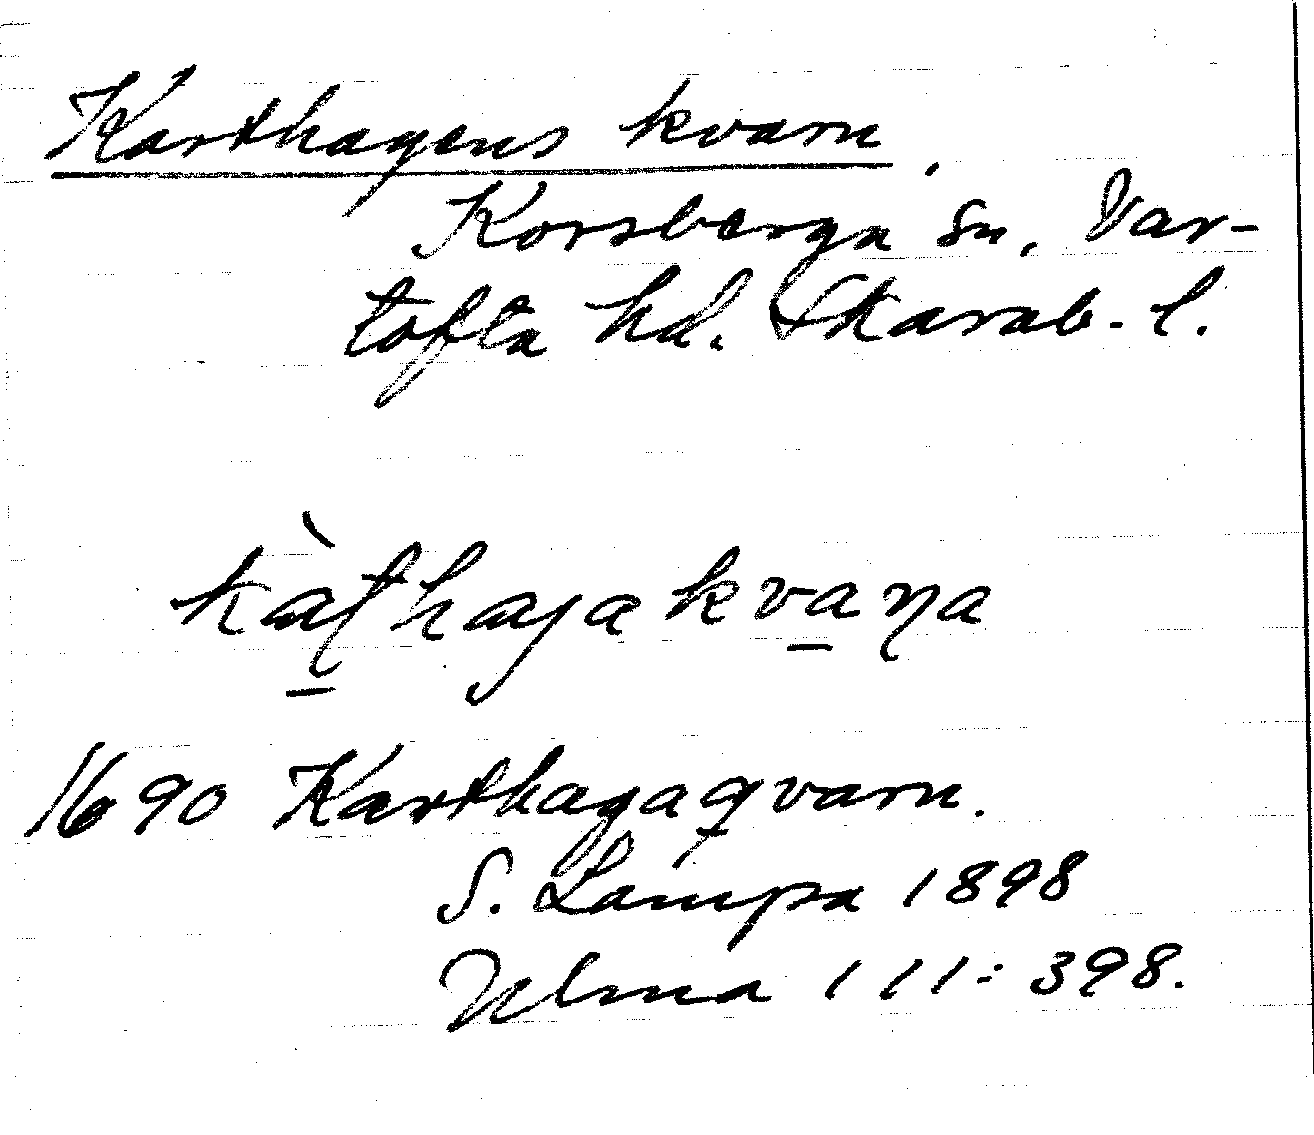 Karthagens kvarn.
Korsberga sn, Var-
tofta hd. Skarab. l.
kàt̠hagakva̠ɳa
1690 Karthagaqvarn.
S. Lampa 1898
Ulma 111:398.